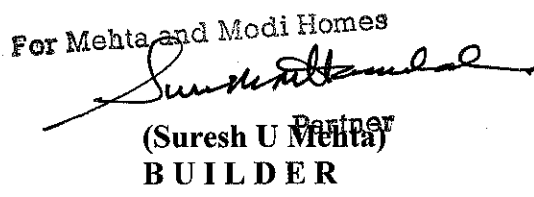 For Mehta and Modi Homes
Partner
(Suresh U Mehta)
B U I L D E R